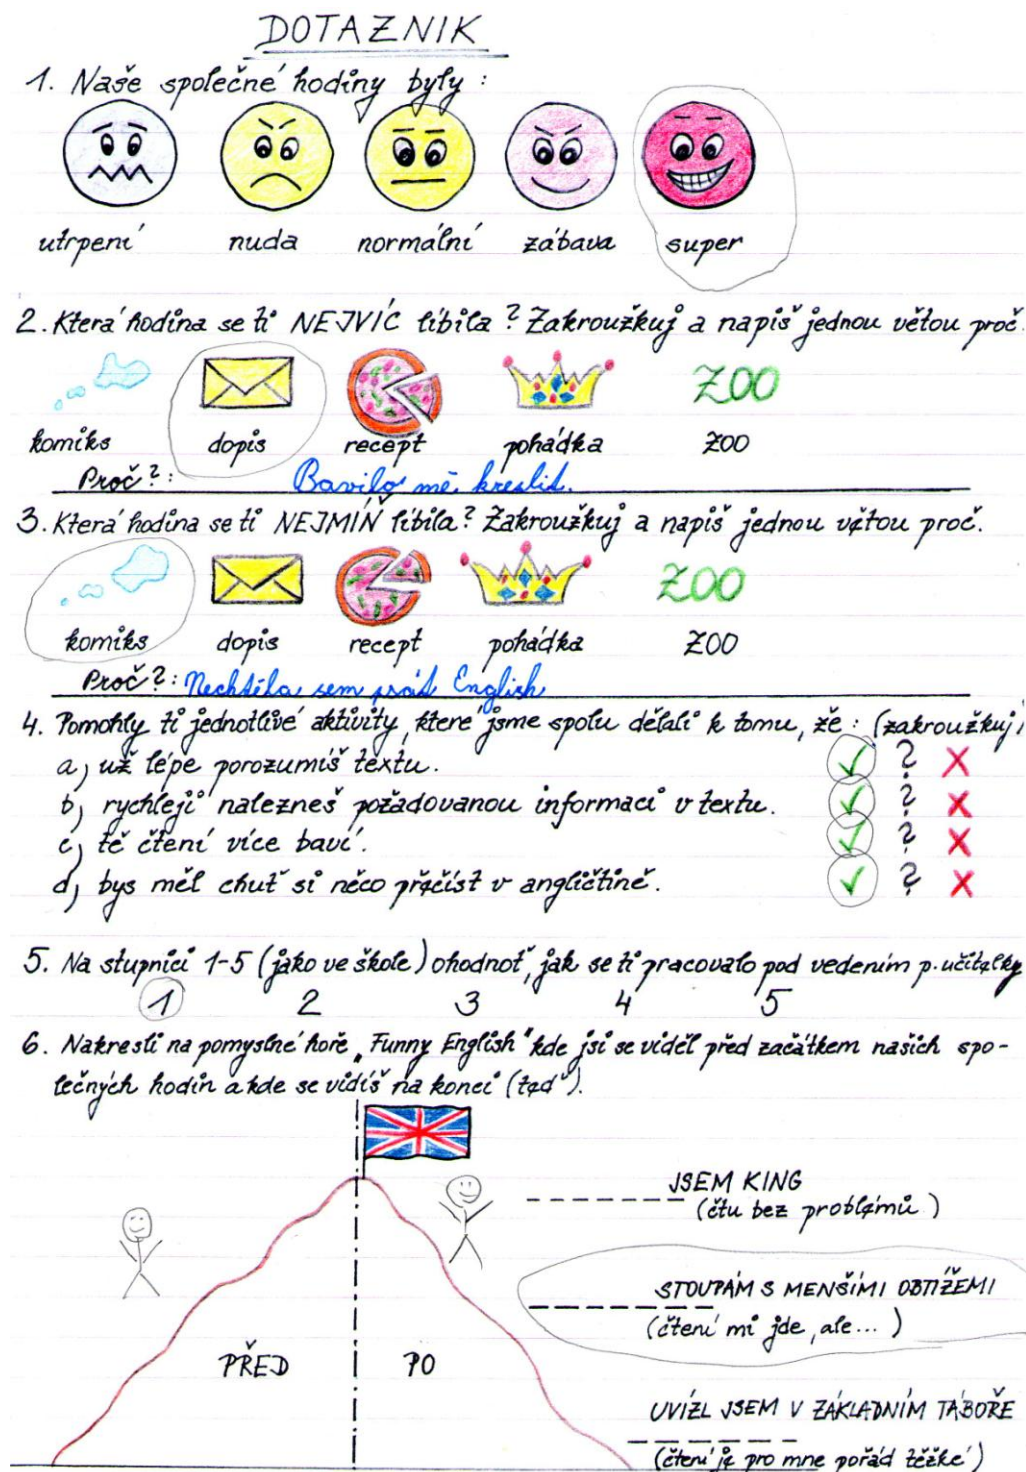 DOTAZNIK
1. Naše společné hodiny byly :
utrpení nuda normální zábava super
2. Která hodina se ti NEJVÍC líbila ? Zakroužkuj a napiš jednou větou proč.
ZOO
komiks dopis recept pohádka ZOO
Proč ? : Bavilo mě kreslit.
3. Která hodina se ti NEJMÍŇ líbila ? Zakroužkuj a napiš jednou větou proč.
ZOO
komiks dopis recept pohádka ZOO
Proč ? : Nechtěla sem psát English
4. Pomohly ti jednotlivé aktivity, které jsme spolu dělali k tomu, že : (zakroužkuj)
a) už lépe porozumíš textu. ✓ ? X
b) rychleji nalezneš požadovanou informaci v textu. ✓ ? X
c) tě čtení více baví. ✓ ? X
d) bys měl chuť si něco přečíst v angličtině. ✓ ? X
5. Na stupnici 1-5 (jako ve škole) ohodnoť, jak se ti pracovalo pod vedením p. učitelky
1 2 3 4 5
6. Nakresli na pomyslné hoře „Funny English" kde jsi se viděl před začátkem našich spo-
lečných hodin a kde se vidíš na konci (teď).
JSEM KING
(čtu bez problémů)
STOUPÁM S MENŠÍMI OBTÍŽEMI
(čtení mi jde, ale...)
PŘED PO
UVÍZL JSEM V ZÁKLADNÍM TÁBOŘE
(čtení je pro mne pořád těžké)